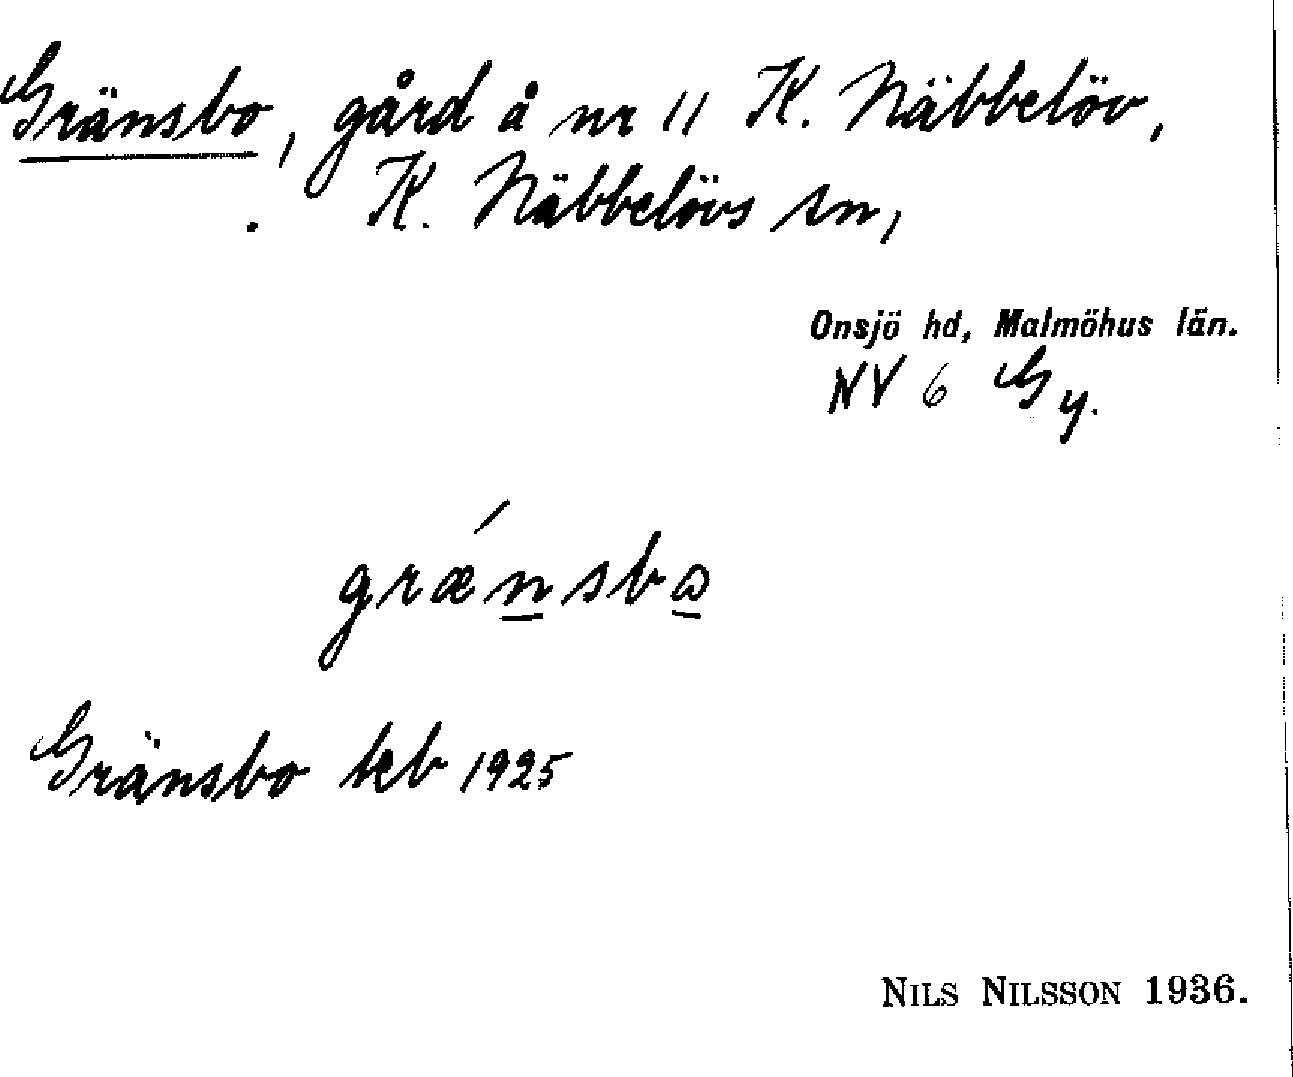 Gränsbo, gård å nr 11 K. Näbbelöv,
K. Näbbelövs sn,
Onsjö hd, Malmöhus län.
NV 6 Gy.
grǽn̲sbω̲
Gränsbo teb 1925
NILS NILSSON 1936.